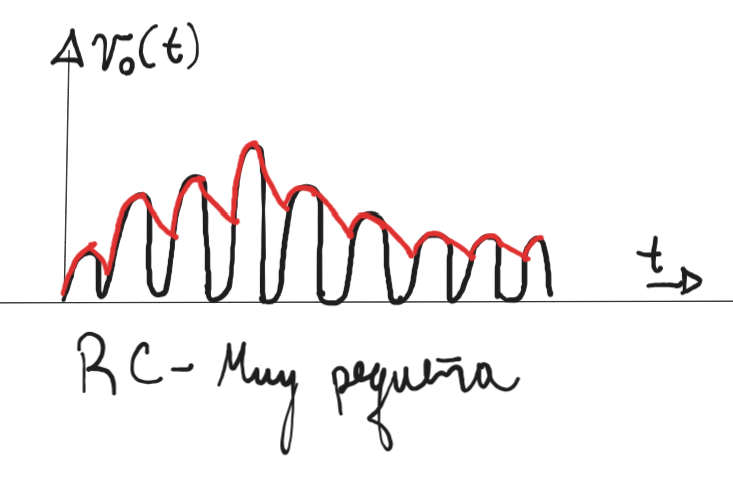 Δ v₀(t)
t
RC - Muy pequeña